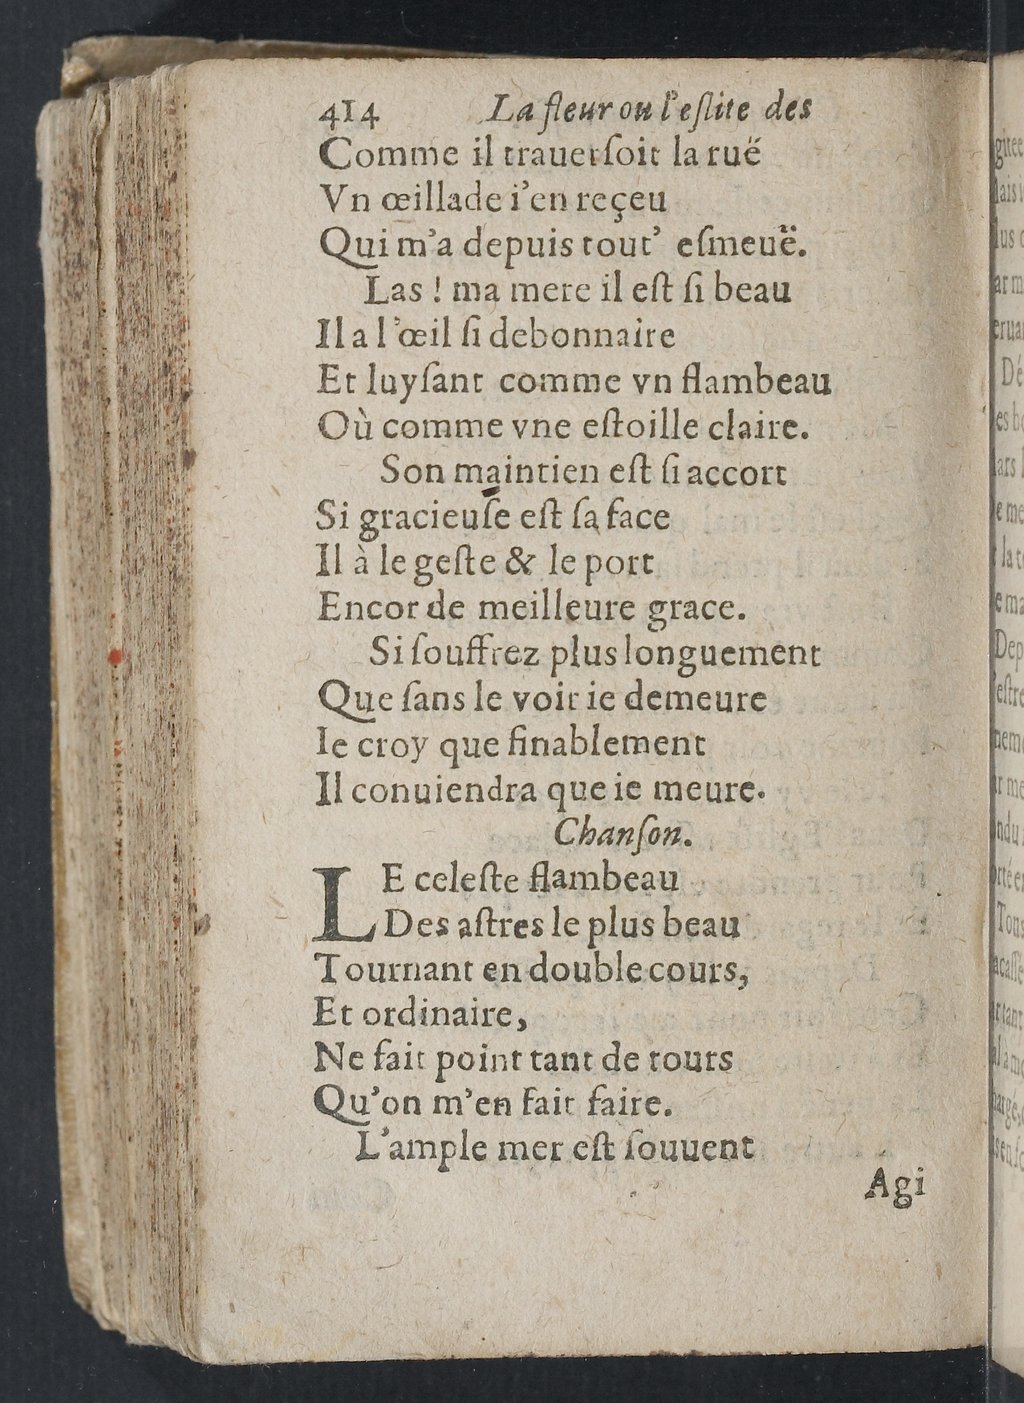 414 La fleur ou l'eſlite des
Comme il trauerſoit la ruë
Vn œillade i'en reçeu
Qui m'a depuis tout' eſmeuë.
Las ! ma mere il eſt ſi beau
Il a l'œil ſi debonnaire
Et luyſant comme vn flambeau
Où comme vne eſtoille claire.
Son maintien eſt ſi accort
Si gracieuſe eſt ſa face
Il à le geſte & le port
Encor de meilleure grace.
Si ſouffrez plus longuement
Que ſans le voir ie demeure
Ie croy que finablement
Il conuiendra que ie meure.
Chanſon.
LE celeſte flambeau
Des aſtres le plus beau
Tournant en double cours,
Et ordinaire,
Ne fait point tant de tours
Qu'on m'en fait faire.
L'ample mer eſt ſouuent
Agi